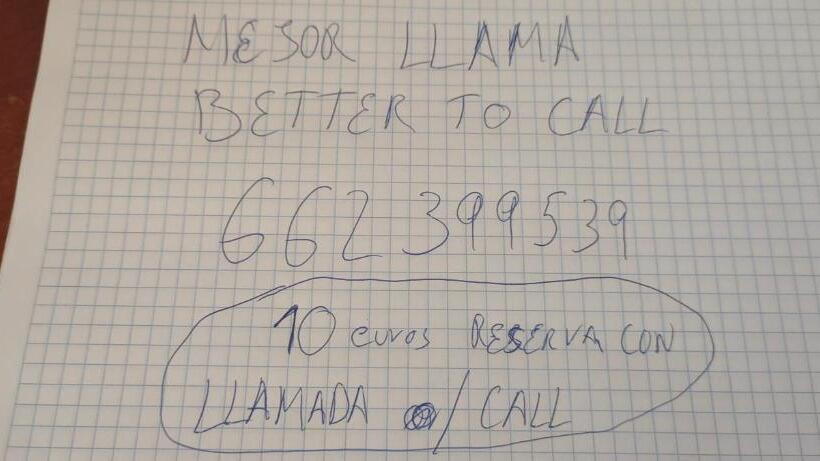 MEJOR LLAMA
BETTER TO CALL
662 399539
10 euros RESERVA CON
LLAMADA / CALL